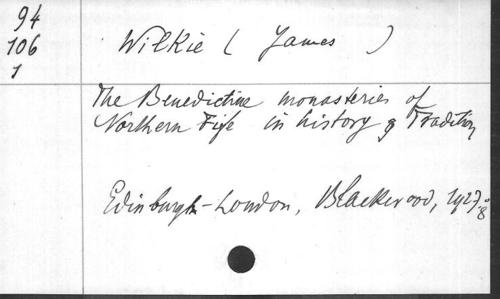 94
106
1
Wilkie ( James )
The Benedictine monasteries of
Northern Fife in history & Tradition
Edinburgh-London, Blackwood, 1927. 8°